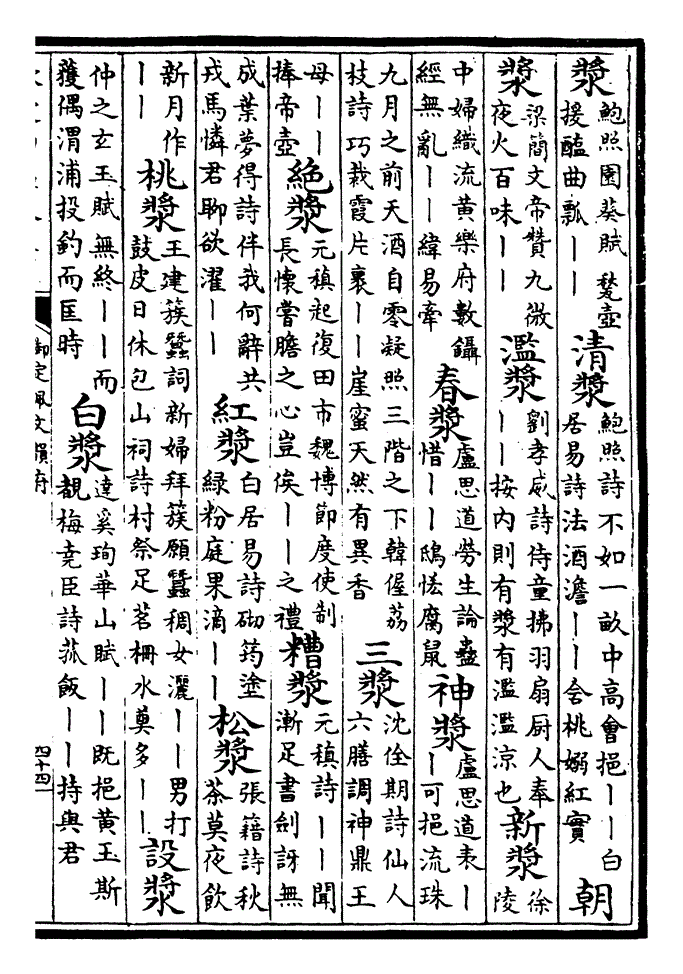 漿鮑照園葵賦甃壺援醢曲瓢丨丨清漿鮑照詩不如一畝中高會挹丨丨白居易詩法酒澹丨丨含桃嫋紅實朝
漿梁簡文帝贊九微夜火百味丨丨濫漿劉孝威詩侍童拂羽扇厨人奉丨丨按内則有漿有濫濫涼也新漿徐陵
中婦織流黃樂府數鑷經無亂丨丨緯易牽春漿盧思道勞生論蠢惜丨丨鴟恡腐鼠神漿盧思道表丨丨可挹流珠
九月之前天酒自零凝照三階之下韓偓荔枝詩巧裁霞片裹丨丨崖蜜天然有異香三漿沈佺期詩仙人六膳調神鼎王
母丨丨捧帝壺絶漿元稹起復田市魏博節度使制長懷嘗膽之心豈俟丨丨之禮糟漿元稹詩丨丨聞漸足書劍訝無
成葉夢得詩伴我何辭共戎馬憐君聊欲濯丨丨紅漿白居易詩砌筠塗緑粉庭果滴丨丨松漿張籍詩秋茶莫夜飲
新月作丨丨桃漿王建簇蠶詞新婦拜簇願蠶稠女灑丨丨男打鼓皮日休包山祠詩村祭足茗柵水奠多丨丨設漿
仲之玄玉賦無終丨丨而獲偶渭浦投釣而匡時白漿達奚珣華山賦丨丨既挹黃玉斯覩梅堯臣詩菰飯丨丨持與君
御定佩文韻府
四十四